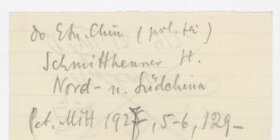 do Etn. Chin (pol. tá)
Schmitthenner H.
Nord- u. Südchina
Pet. Mitt 1927, 5-6, 129-